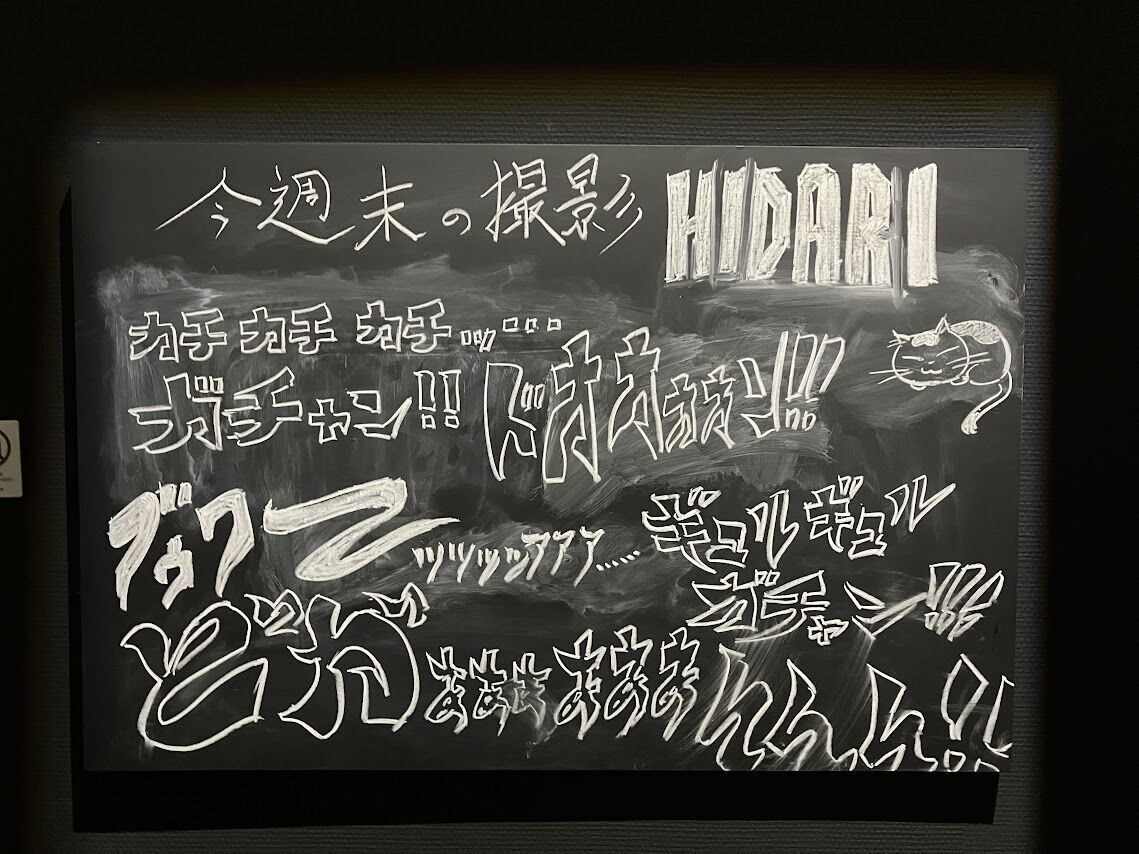 今週末の撮影 HIDARI
カチカチ カチ...ッ...
ガチャン!! ドオオォォン!!!
ブゥワー ッッッッンアアァ..... ギュルギュル
ガチャン!!!
どがぁぁぁぁぁぁんんん!!